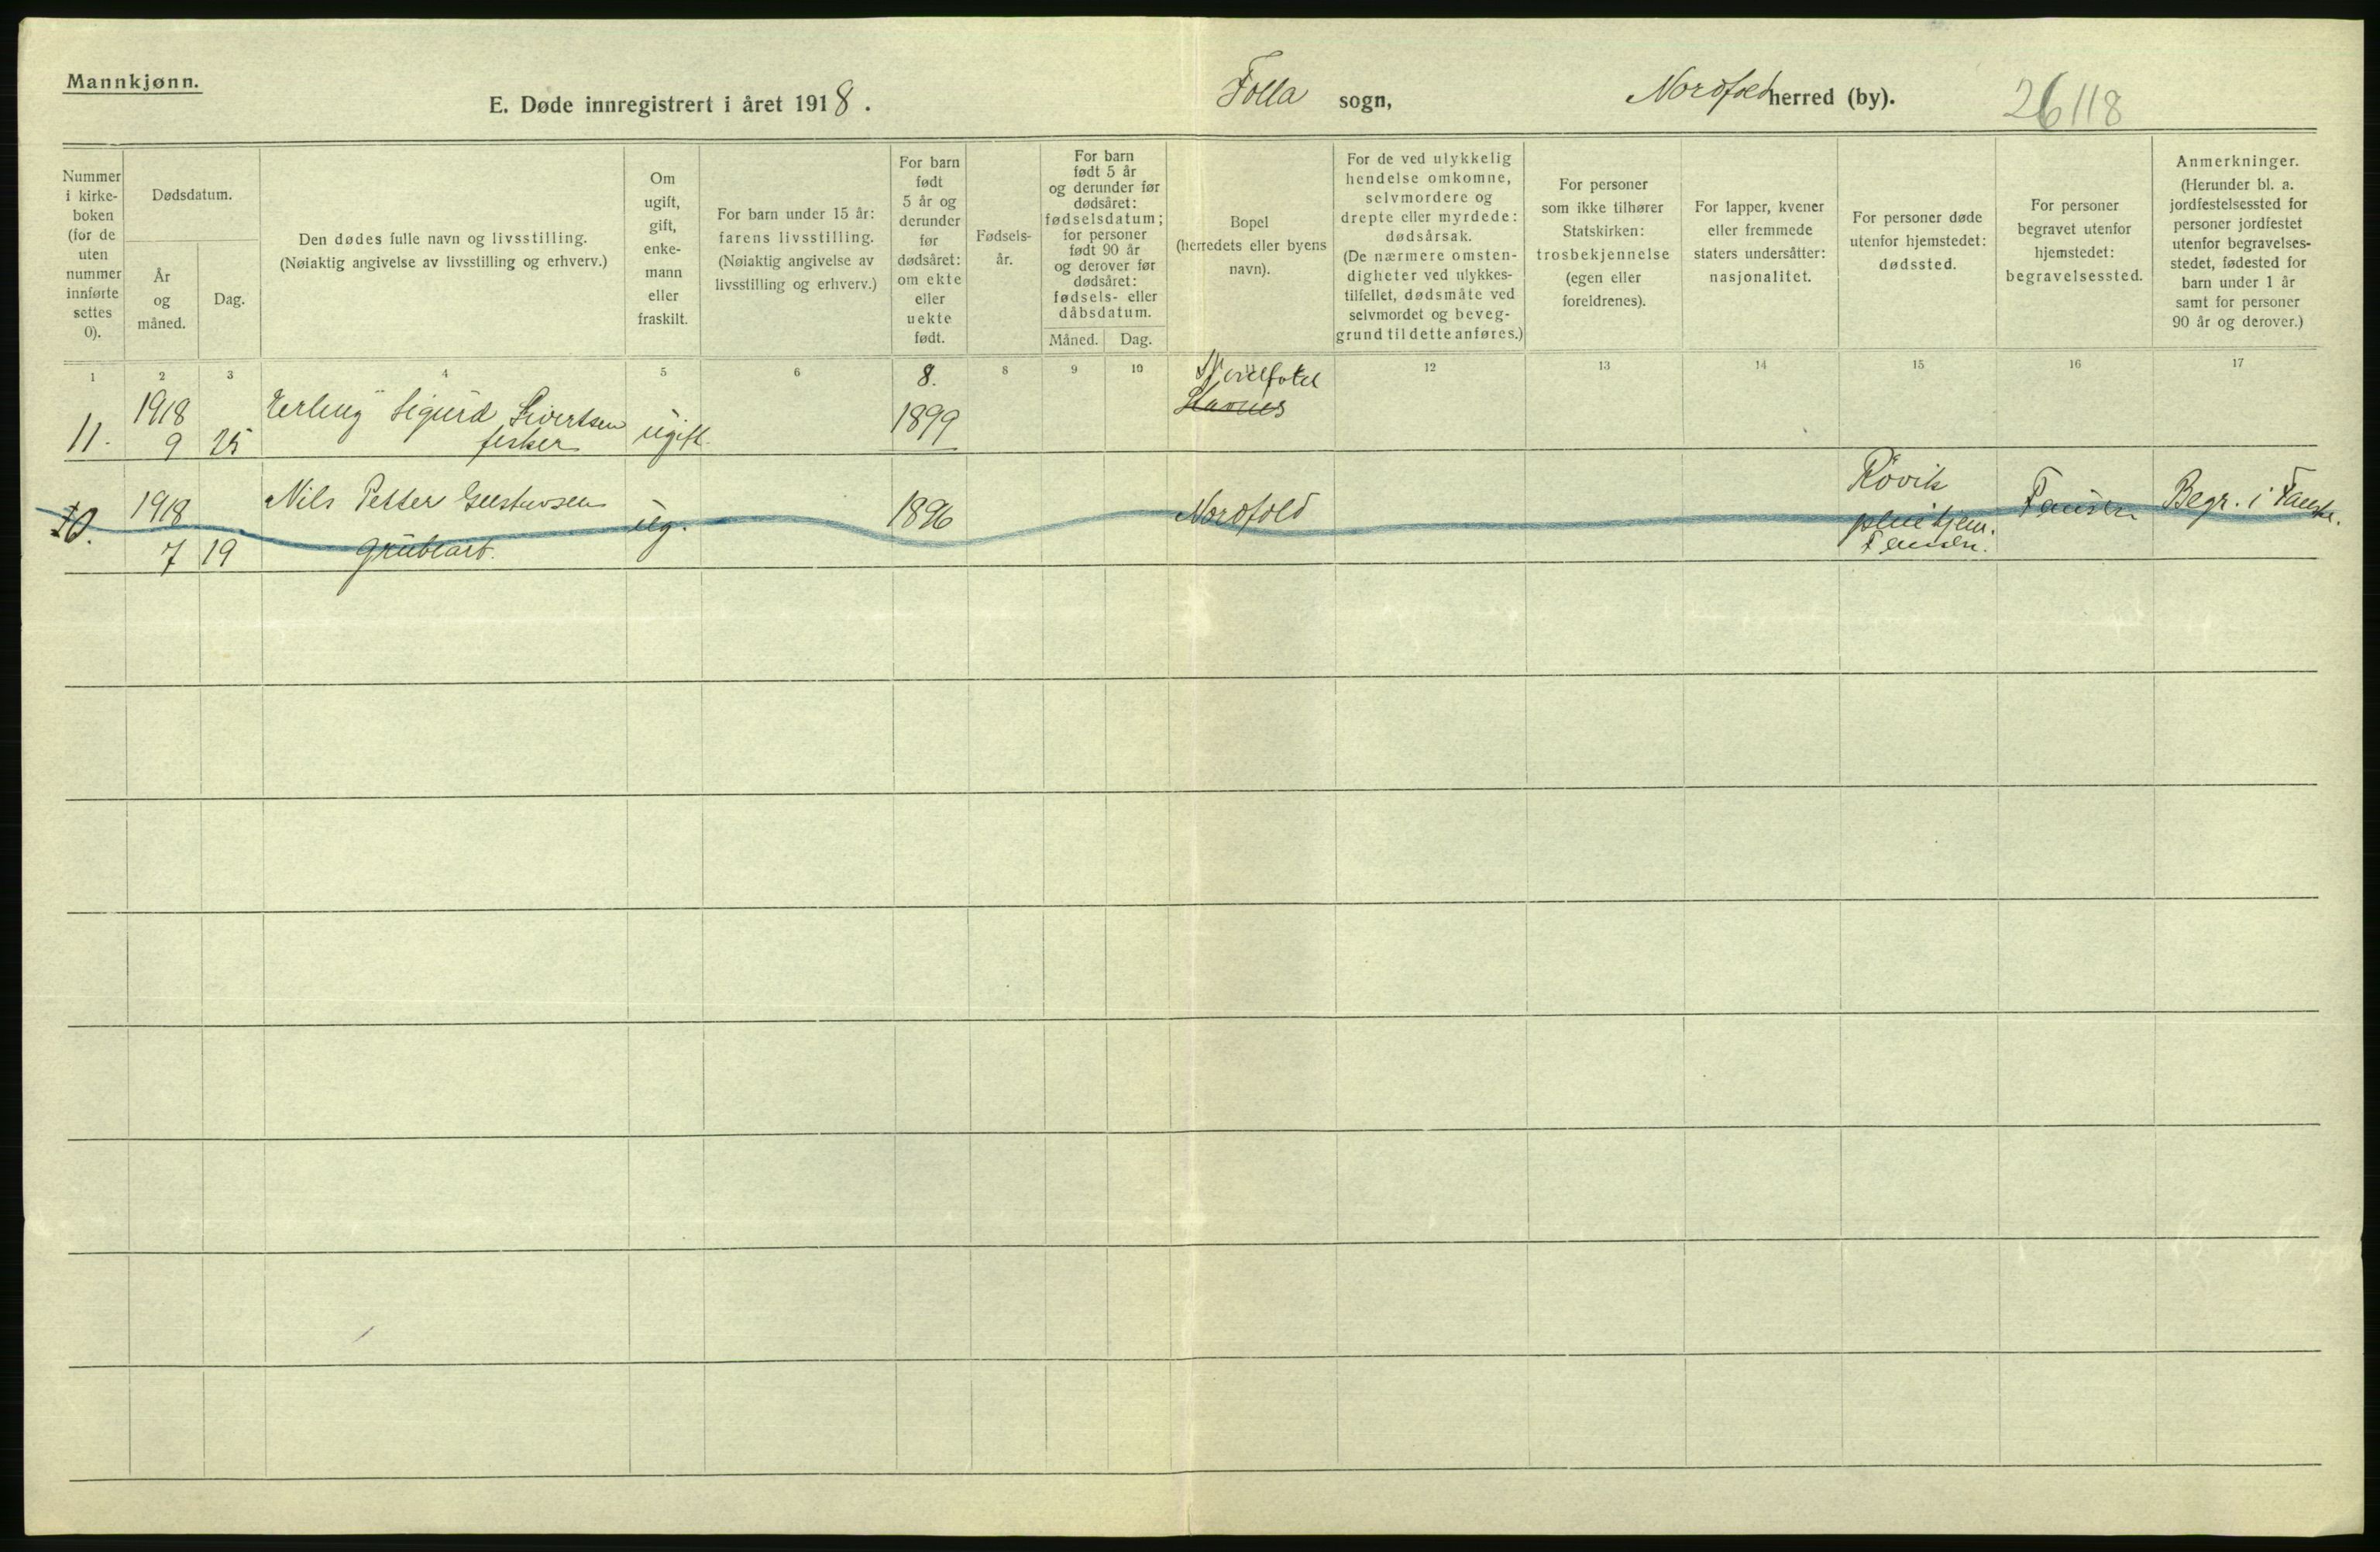 Mannkjønn.
E. Døde innregistrert i året 1918.
Folla sogn,
Nordfold herred (by).
26118
Nummer
i kirke-
boken
(for de
uten
nummer
innførte
settes
0).
Dødsdatum.
År
og
måned.
Dag.
Den dødes fulle navn og livsstilling.
(Nøiaktig angivelse av livsstilling og erhverv.)
Om
ugift,
gift,
enke-
mann
eller
fraskilt.
For barn under 15 år:
farens livsstilling.
(Nøiaktig angivelse av
livsstilling og erhverv.)
For barn
født
5 år og
derunder
før
dødsåret:
om ekte
eller
uekte
født.
Fødsels-
år.
For barn
født 5 år
og derunder før
dødsåret:
fødselsdatum;
for personer
født 90 år
og derover før
dødsåret:
fødsels- eller
dåbsdatum.
Måned. Dag.
Bopel
(herredets eller byens
navn).
For de ved ulykkelig
hendelse omkomne,
selvmordere og
drepte eller myrdede:
dødsårsak.
(De nærmere omsten-
digheter ved ulykkes-
tilfellet, dødsmåte ved
selvmordet og beveg-
grund til dette anføres.)
For personer
som ikke tilhører
Statskirken:
trosbekjennelse
(egen eller
foreldrenes).
For lapper, kvener
eller fremmede
staters undersåtter:
nasjonalitet.
For personer døde
utenfor hjemstedet:
dødssted.
For personer
begravet utenfor
hjemstedet:
begravelsessted.
Anmerkninger.
(Herunder bl. a.
jordfestelsessted for
personer jordfestet
utenfor begravelses-
stedet, fødested for
barn under 1 år
samt for personer
90 år og derover.)
1 2 3 4 5 6 8. 8 9 10 12 13 14 15 16 17
11. 1918 9 25 Erling Sigurd Sivertsen fisker ugift 1899 Nordfold
10. 1918 7 19 Nils Petter Gustavsen grubearb. ug. 1896 Nordfold Røvik pleiehjem. Fauske. Fauske Begr. i Fauske.